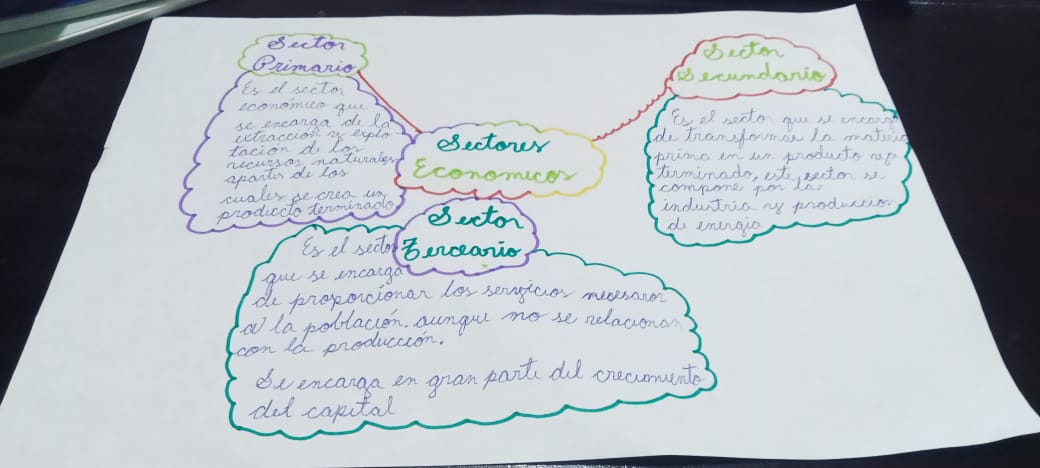 Sectores
Economicos
Sector
Primario
Es el sector
económico que
se encarga de la
extracción y explo
tación de los
recursos naturales
apartir de los
cuales se crea un
producto terminado
Sector
Secundario
Es el sector que se encarga
de transformar la materia
prima en un producto
terminado, este sector se
compone por la
industria y produccion
de energia
Sector
Es el sector
que se encarga
de proporcionar los servicios
a la población. aunque no se relacionan
con la producción.
Se encarga en gran parte del crecimiento
del capital